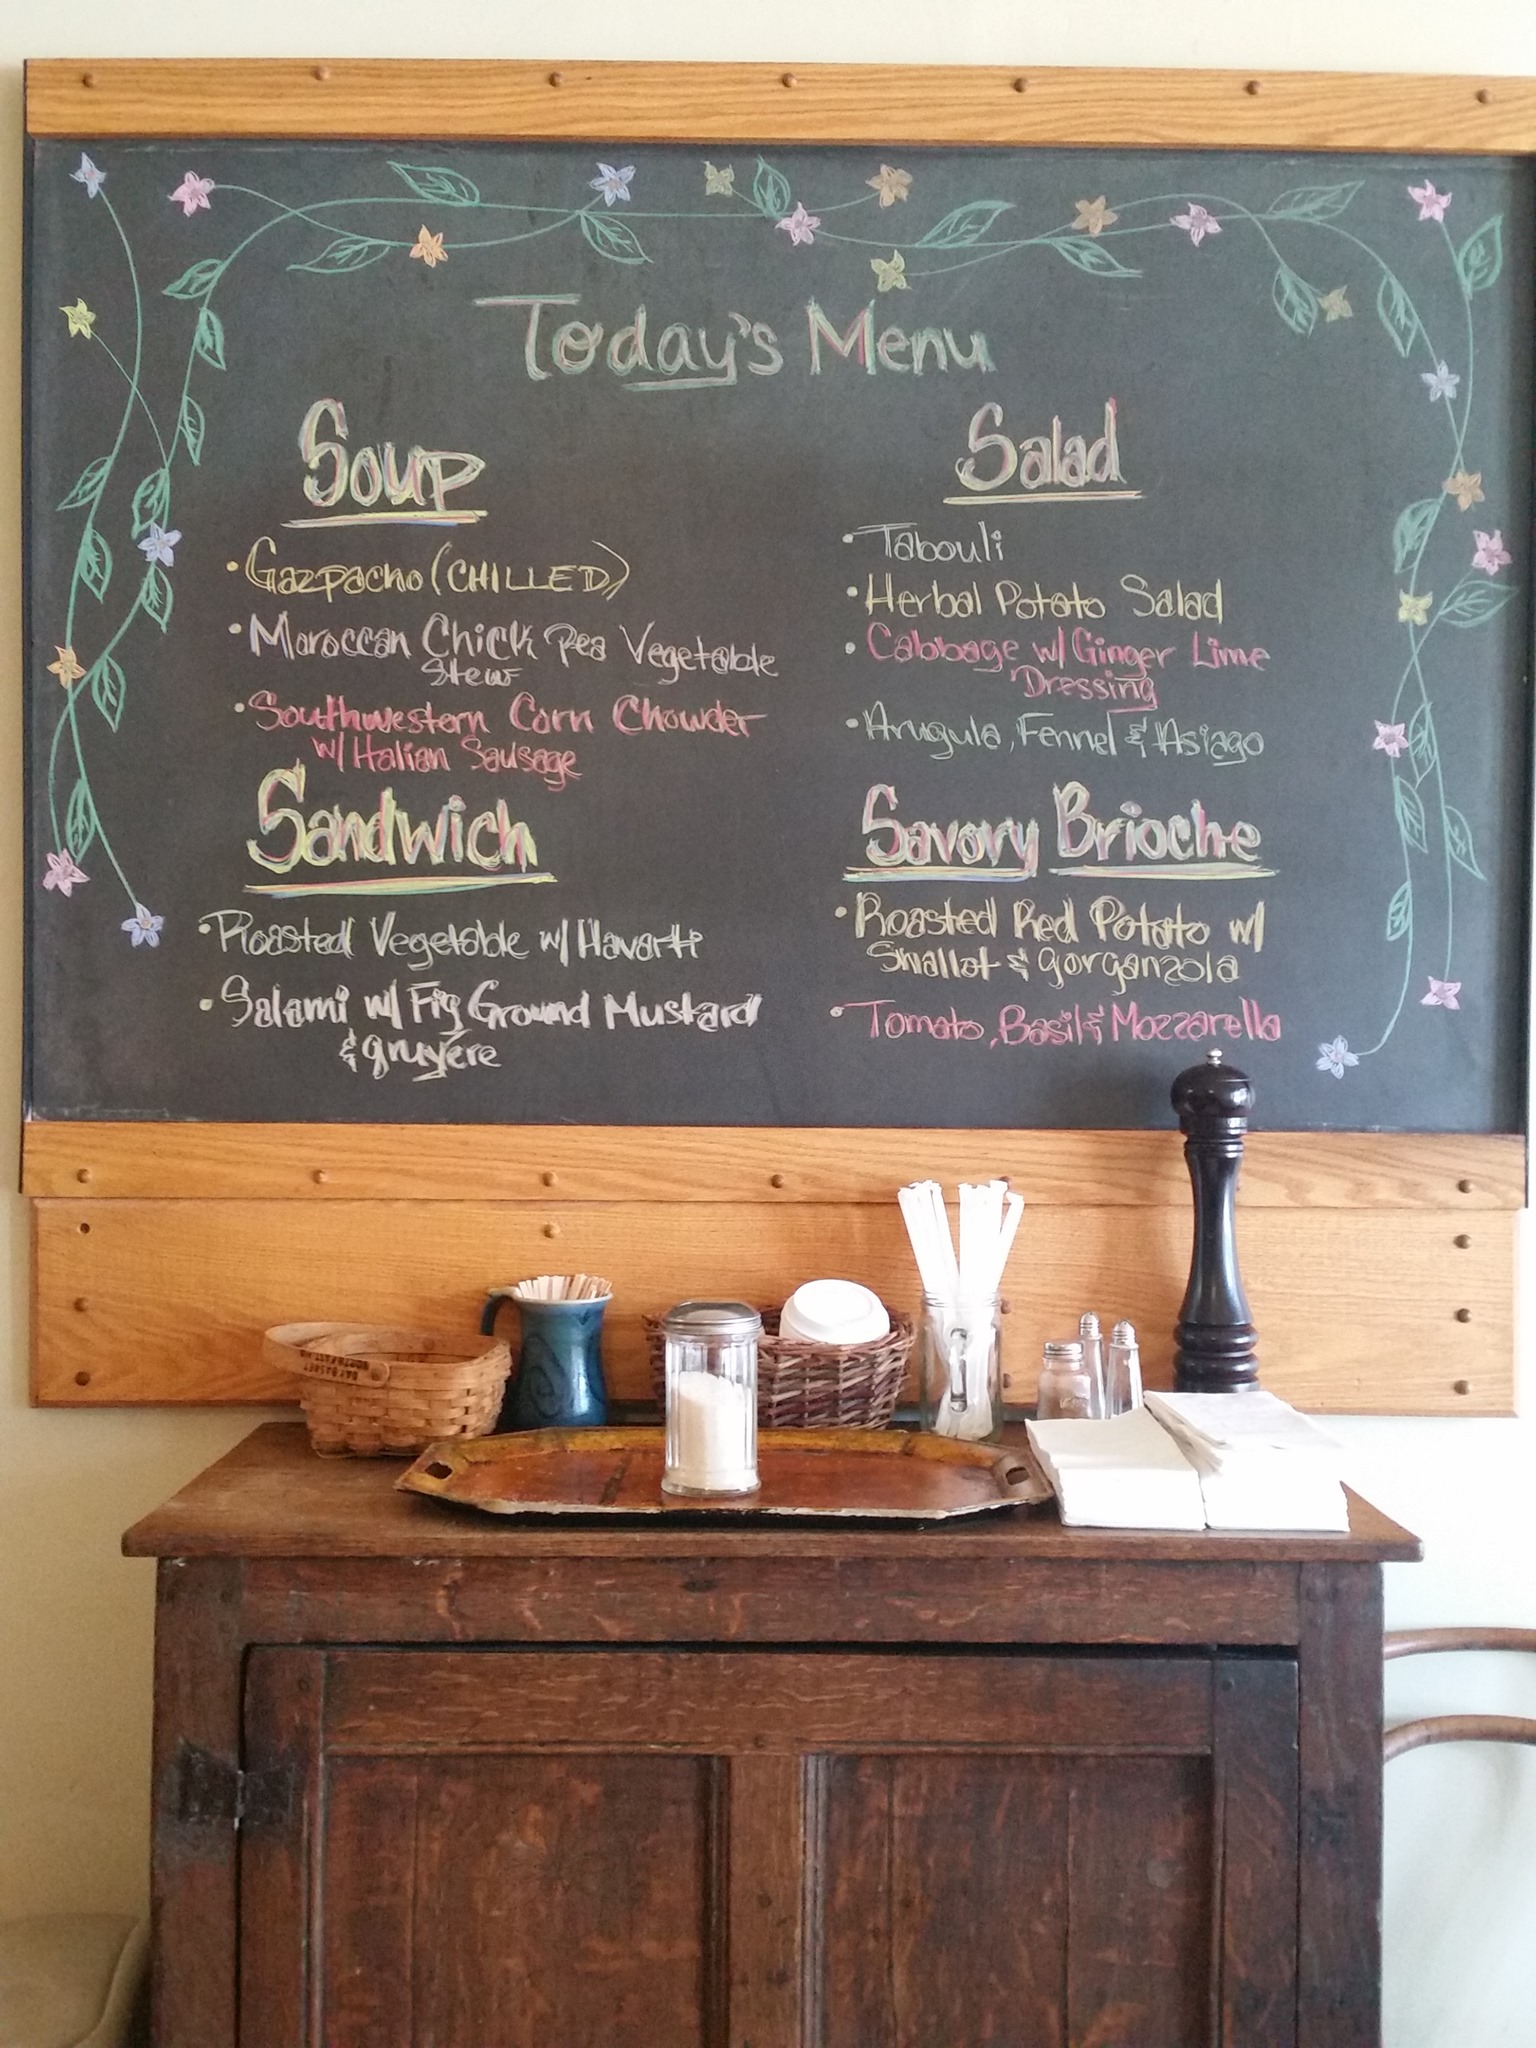 Today's Menu
Soup
• Gazpacho (CHILLED)
• Moroccan Chick Pea Vegetable
Stew
• Southwestern Corn Chowder
w/ Italian Sausage
Sandwich
• Roasted Vegetable w/ Havarti
• Salami w/ Fig Ground Mustard
& gruyere
Salad
• Tabouli
• Herbal Potato Salad
• Cabbage w/ Ginger Lime
Dressing
• Arugula, Fennel & Asiago
Savory Brioche
• Roasted Red Potato w/
Shallot & gorganzola
• Tomato, Basil & Mozzarella